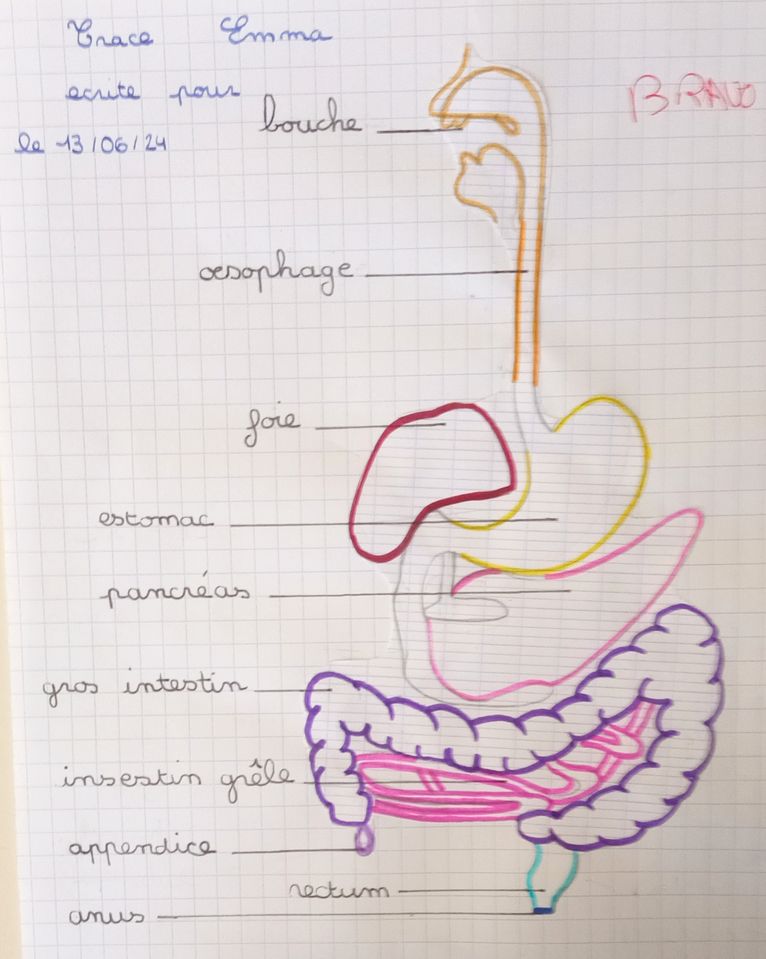 Trace Emma
ecrite pour
le 13/06/24
BRAVO
bouche
oesophage
foie
estomac
pancréas
gros intestin
insestin grêle
appendice
rectum
anus